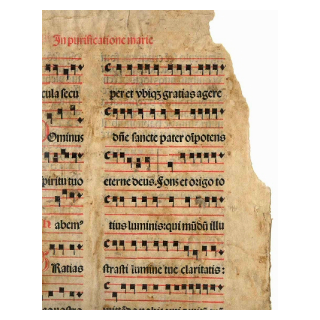 In purificatione marie
cula secu
Ominus
spiritu tuo
abem⁹
Ratias
per et vbiqꝫ gratias agere
dn̄e sancte pater oīpotens
eterne deus. Fons et origo to
tius luminis: qui mūdū illu
strasti lumine tue claritatis: